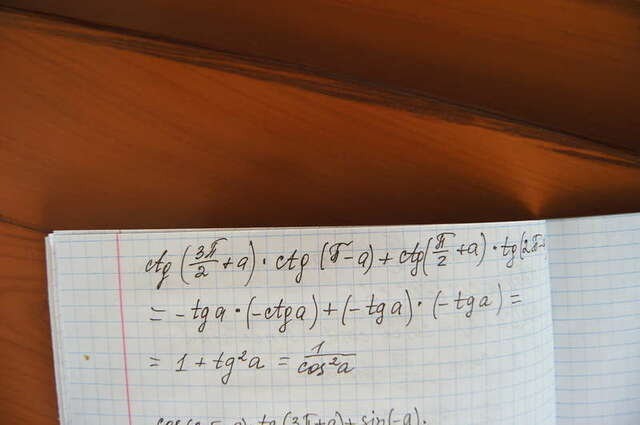 ctg(3π/2+a)·ctg(π-a)+ctg(π/2+a)·tg(2π-
=-tga·(-ctga)+(-tga)·(-tga)=
=1+tg²a=1/cos²a
tg(3π+a)+sin(-a).